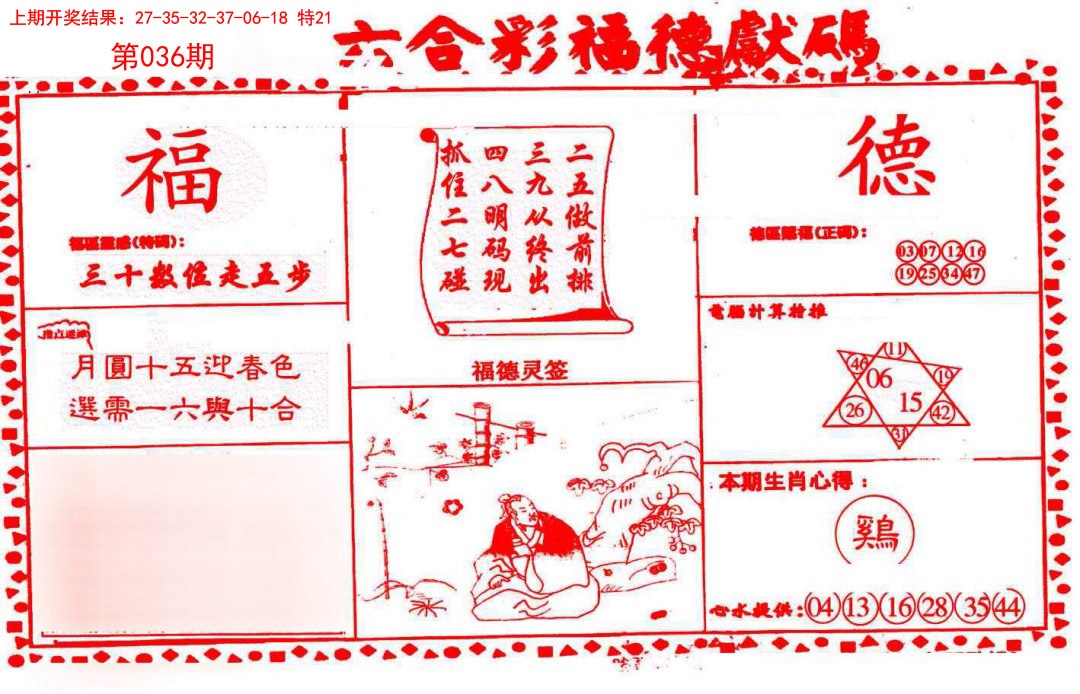 上期开奖结果：27-35-32-37-06-18 特21
第036期
六合彩福德獻碼
福
福區靈感(特碼)：
三十數位走五步
月圓十五迎春色
選需一六與十合
二五做前排
三九从终出
四八明码现
抓住二七碰
福德灵签
德
德區賜福(正碼)：
03 07 12 16
19 25 34 47
電腦計算拾推
11
46
06
19
15
26
42
31
本期生肖心得：
鷄
心水提供：04 13 16 28 35 44